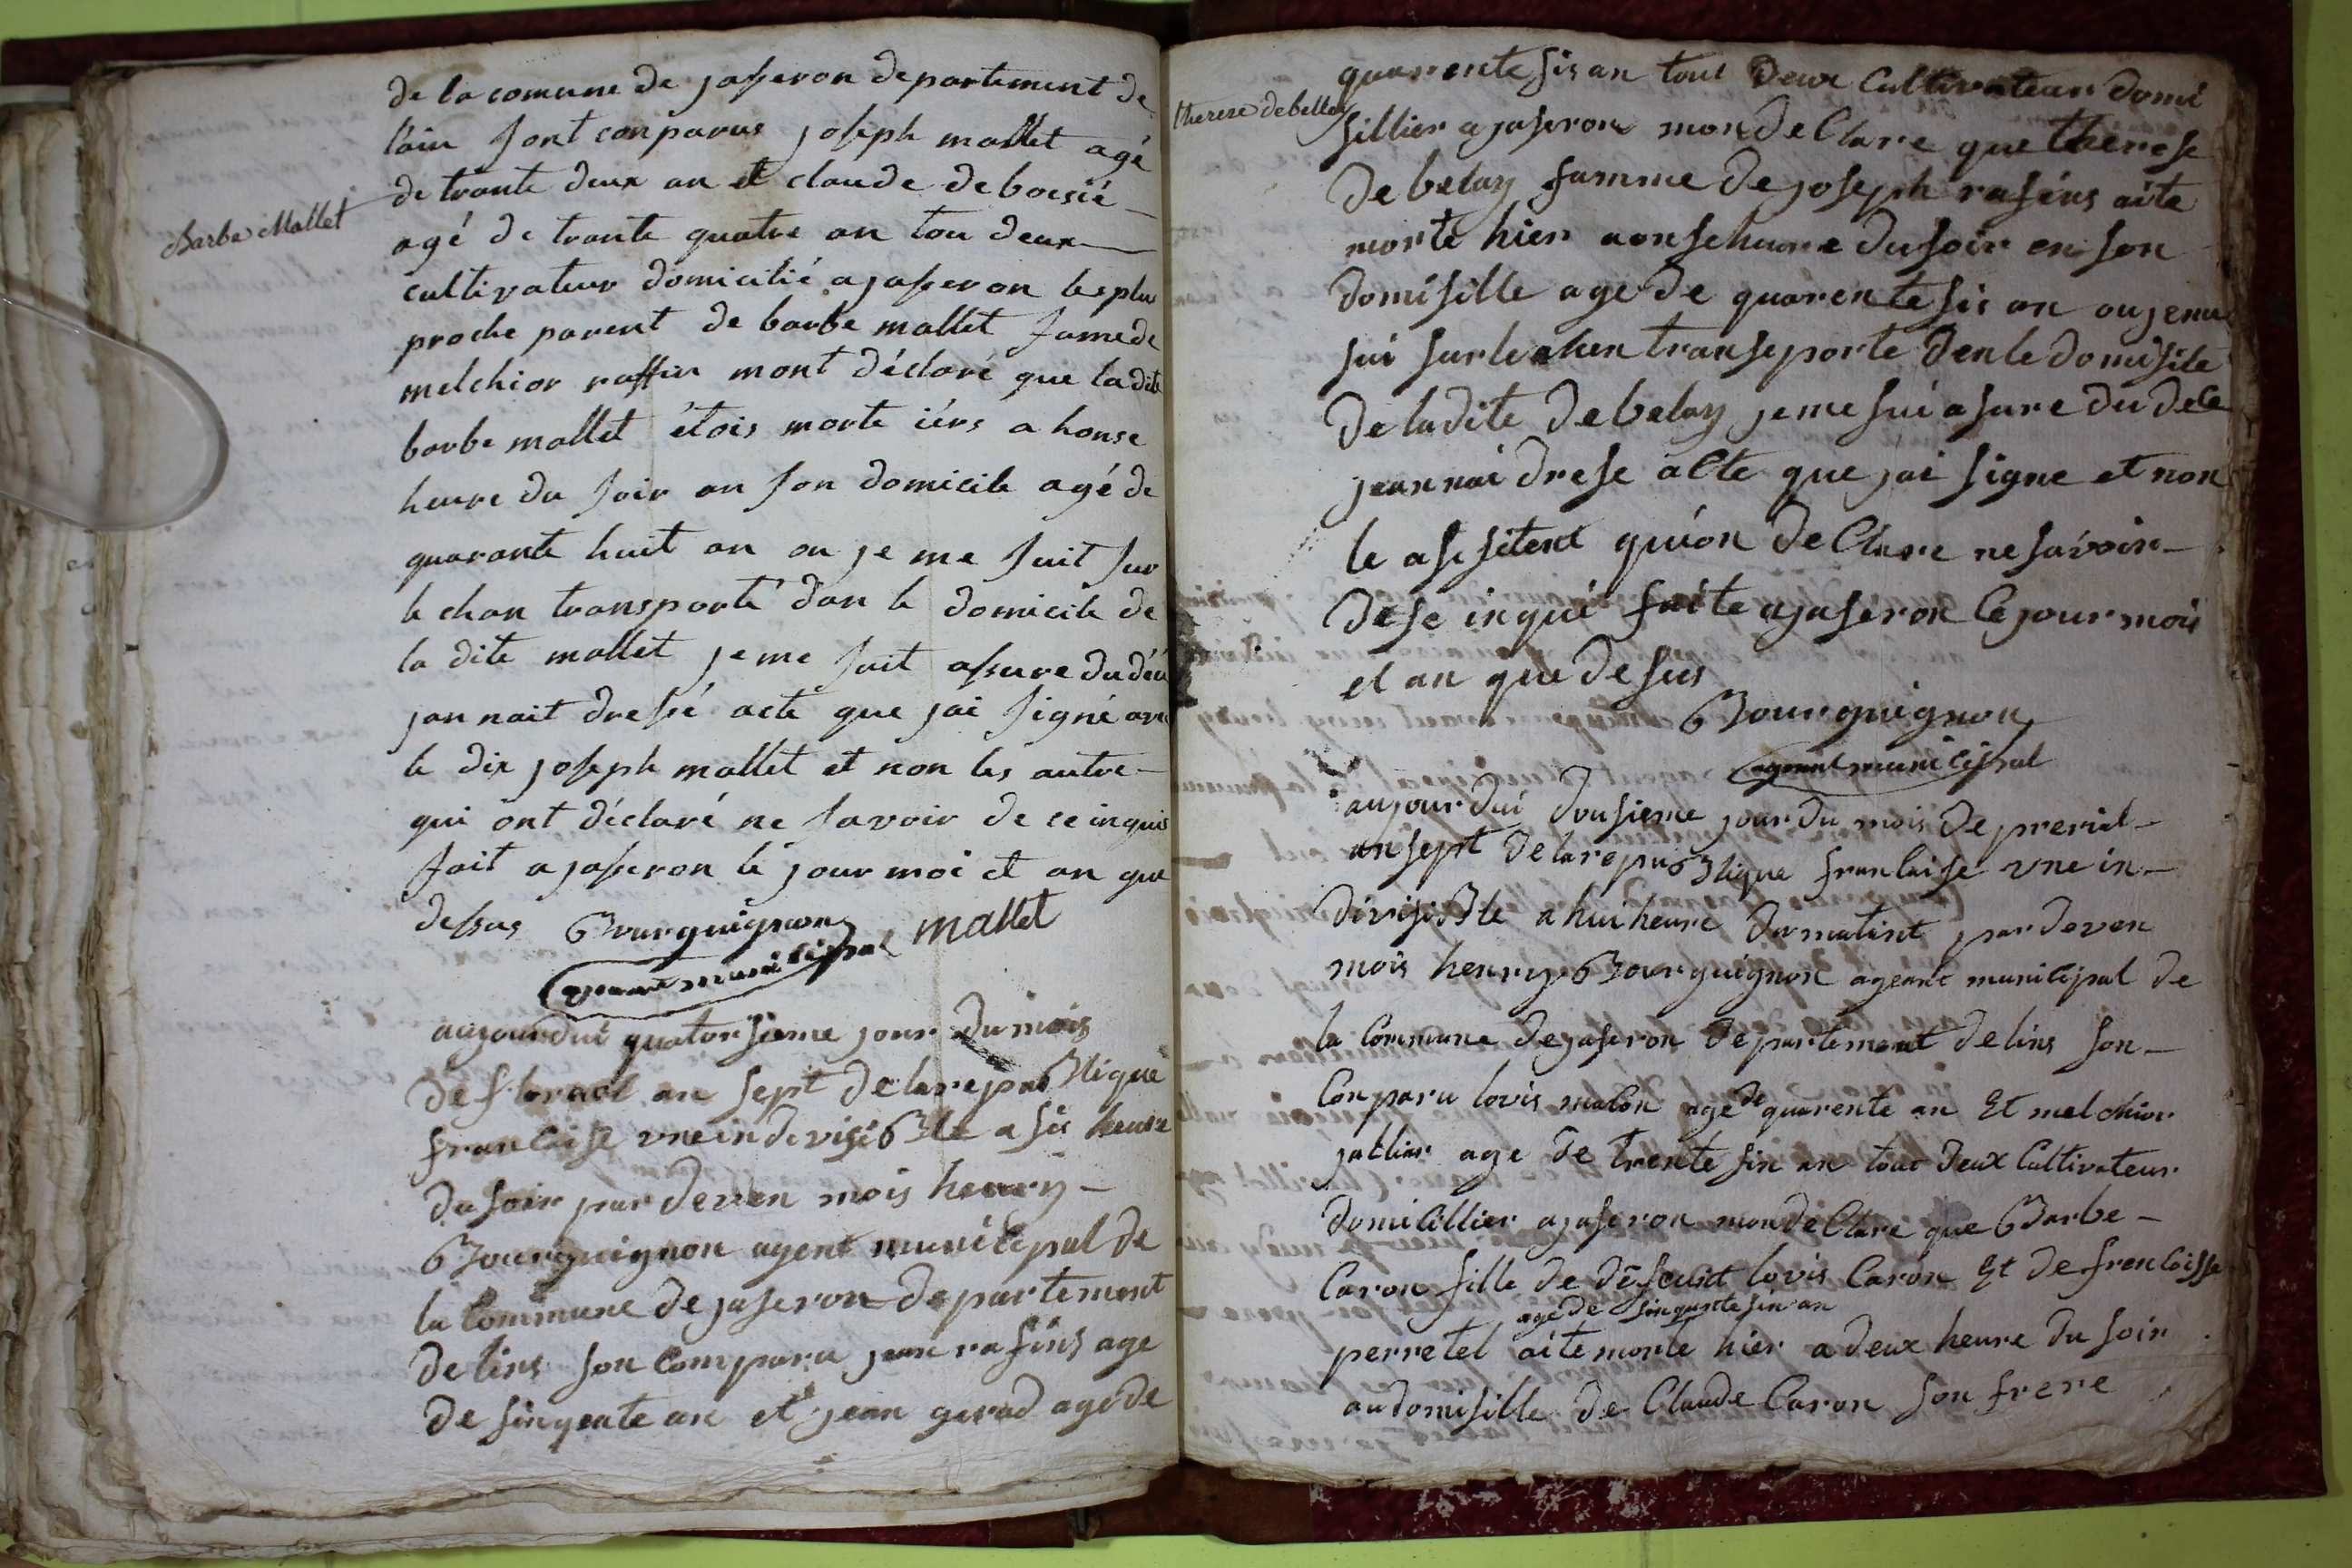 de la comune de jasseron departement de
l'ain sont conparus joseph mallet agé
de trante deux an et claude deboisié
Barbe Mallet
agé de trante quatre an tou deux
cultivateur domicilié a jasseron les plus
proche parent de barbe mallet fame de
melchior raffin mont déclaré que la dite
barbe mallet étois morte iérs a honse
heure du soir an son domicile agé de
quarante huit an ou je me suit sur
le chan transporté dan le domicile de
la dite mallet je me suit assure du
jan nait dressé acte que jai signé avec
le dix joseph mallet et non les autre
qui ont déclaré ne savoir de ce inquis
fait a jasseron le jour moi et an que
dessus Bourguignon mallet
ageant municipal
aujourdui quatorsieme jour du mois
de floraol an sept de la republique
francaise vne indivisible a sis heure
du soir par deven mois henry
Bourguignon agent municipal de
la Commune de jaseron departement
de lins son Comparu jean rafins age
de sinqente an et jean gerod agé de
quarente sis an tout Deux Cultivateur domi
therese debellay
sillier a jaseron mon deClare que therese
De belay famme de joseph rasins aite
morte hier aonsehure du soir en son
domisille age de quarente sis an ou je me
sui sur le chen transeporte den le domisile
De la dite De belay je me sui asure du dece
jean nai drese aCte que jai signe et non
le assitent qui on deClare ne savoir
dese inqui faite a jaseron le jour mois
et an que desus
Bourguignon
ageant municipal
aujourdui dousieme jour du mois de prerial
an sept de la republique francaise vne in
divisible a hui heure du matint par deven
mois henry Bourguignon ageant municipal de
la Commune de jaseron departement de lins son
Conparu lovis maton age de quarente an Et melchior
age de trente sin an tout deux Cultivateur
domicillier a jaseron mon deClare que Barbe
Caron fille de defeunt lovis Caron Et de francoisse
age de sinquente sin an
perretel aite morte hier a deux heure du soir
au domisille de Claude Caron son frere